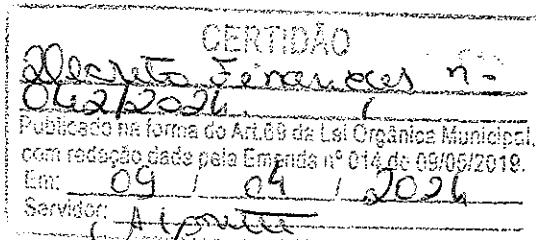 CERTIDÃO
Decreto Financeiro nº
042/2024
Publicado na forma do Art.69 da Lei Orgânica Municipal,
com redação dada pela Emenda nº 014 de 09/05/2019.
Em: 09 / 04 / 2024
Servidor: